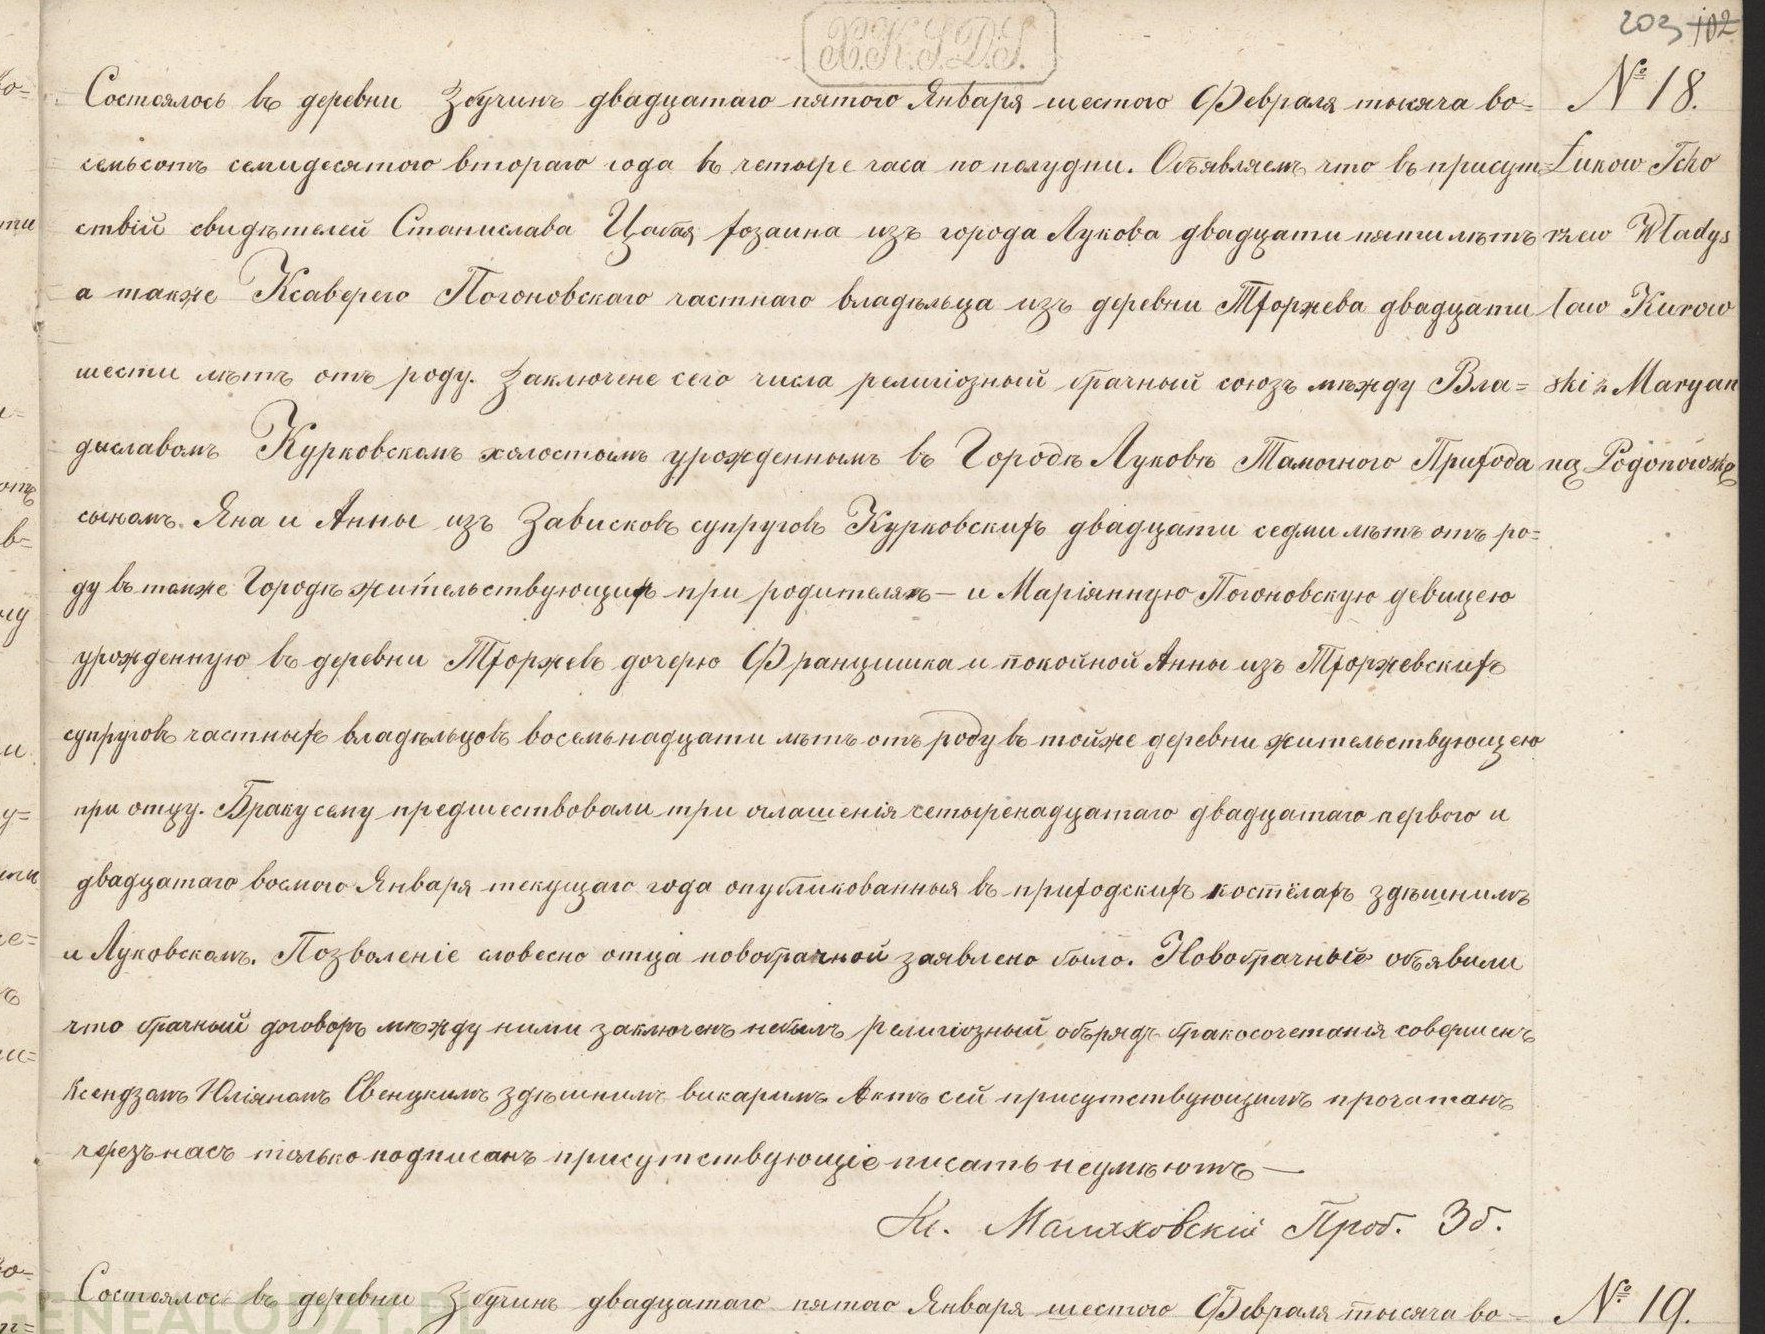 X.K.G.D.G.
203 102
Состоялось въ деревни Збучинъ двадцатаго пятого Января шестого Февраля тысяча во=
№ 18.
семьсотъ семидесятого втораго года въ четыре часа по полудни. Объявляемъ что въ присут=
Łukow Tcho
ствiй свидѣтелей Станислава Цабая хозаина изъ города Лукова двадцати пяти лѣтъ
rzew Władys
а также Ксаверего Погоновскаго частнаго владѣльца изъ деревни Тхоржева двадцати
law Kurow
шести лѣтъ отъ роду. Заключене сего числа религiозный брачный союзъ между Вла=
ski z Maryan
дыславомъ Курковскомъ холостомъ урожденнымъ въ Городѣ Луковѣ Тамочного Прихода
ną Pogonowską
сыномъ Яна и Анны изъ Зависковъ супруговъ Курковскихъ двадцати седми лѣтъ отъ ро=
ду въ томже Городѣ жительствующихъ при родителяхъ — и Марiянную Погоновскую девицею
урожденную въ деревни Тхоржевъ дочерю Францишка и покойной Анны изъ Тхоржевскихъ
супруговъ частныхъ владѣльцовъ восемьнадцати лѣтъ отъ роду въ тойже деревни жительствующею
при отцу. Браку сему предшествовали три оглашенiя четыренадцатаго двадцатаго первого и
двадцатаго восмого Января текущаго года опубликованныя въ приходскихъ костёлахъ здѣшнимъ
и Луковскомъ. Позволенiе словесно отца новобрачной заявлено было. Новобрачные объявили
что брачный договоръ между ними заключенъ небылъ религiозный обърядъ бракосочетанiя совершенъ
Ксендзомъ Юлiяномъ Свенцкимъ здѣшнимъ викаримъ Актъ сей присутствующимъ прочитанъ
черезъ насъ только подписанъ присутствующiе писать неумѣютъ —
Кс. Малаховскiй Проб. Зб.
Состоялось въ деревни Збучинъ двадцатаго пятого Января шестого Февраля тысяча во=
№ 19.
GENEALODZY.PL